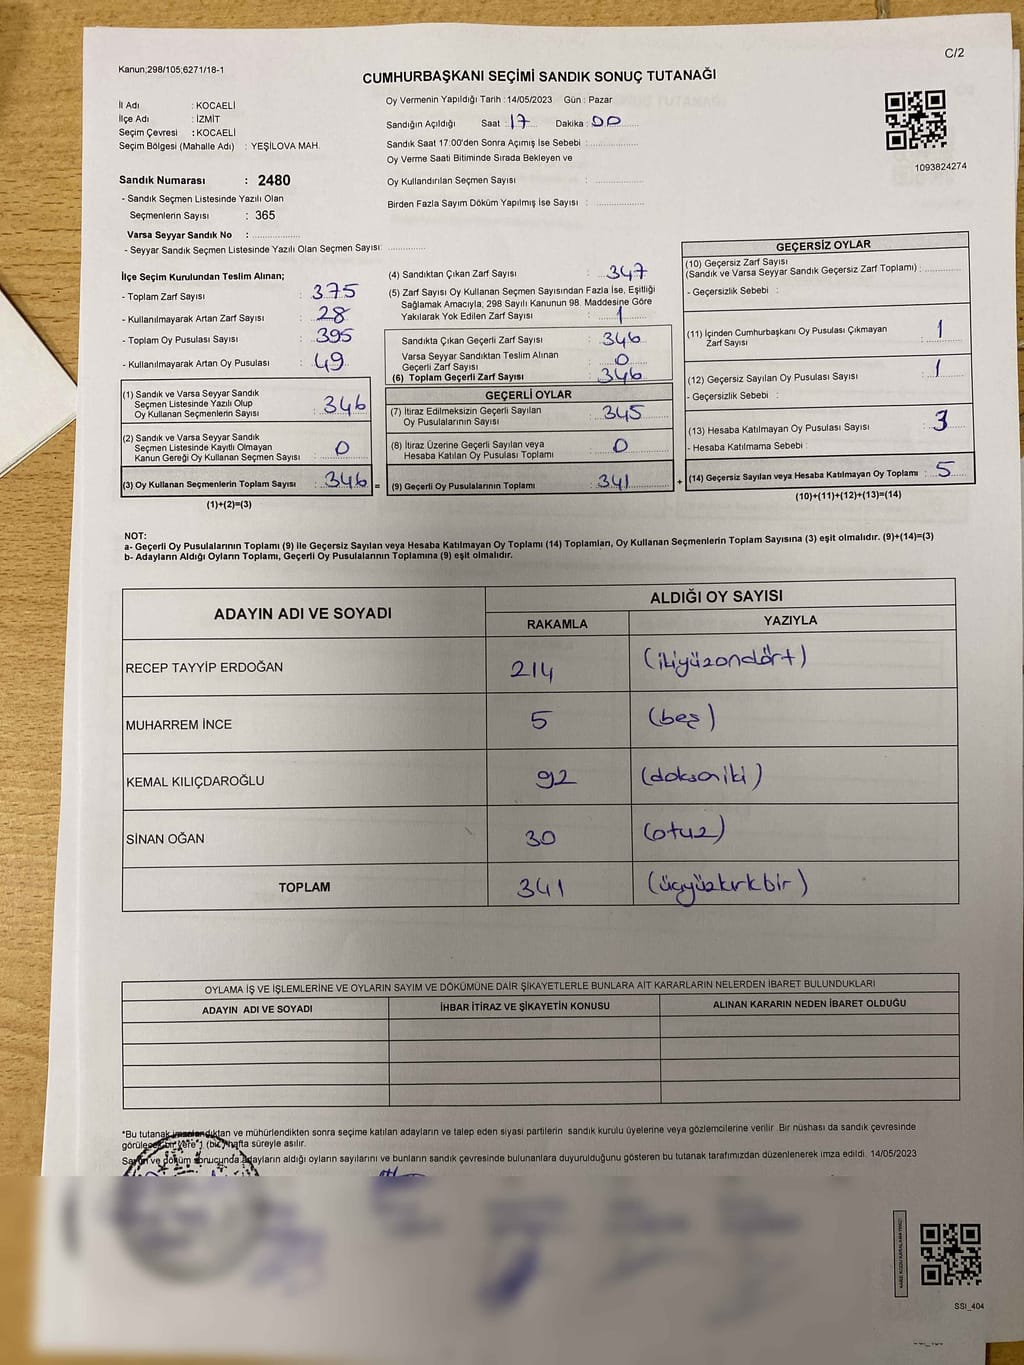 C/2
Kanun;298/105;6271/18-1
CUMHURBAŞKANI SEÇİMİ SANDIK SONUÇ TUTANAĞI
İl Adı : KOCAELİ
İlçe Adı : İZMİT
Seçim Çevresi : KOCAELİ
Seçim Bölgesi (Mahalle Adı) : YEŞİLOVA MAH.
Oy Vermenin Yapıldığı Tarih : 14/05/2023 Gün : Pazar
Sandığın Açıldığı Saat : 17 Dakika : 00
Sandık Saat 17:00'den Sonra Açımış İse Sebebi :
Oy Verme Saati Bitiminde Sırada Bekleyen ve
Oy Kullandırılan Seçmen Sayısı :
Birden Fazla Sayım Döküm Yapılmış İse Sayısı :
1093824274
Sandık Numarası : 2480
- Sandık Seçmen Listesinde Yazılı Olan
Seçmenlerin Sayısı : 365
Varsa Seyyar Sandık No :
- Seyyar Sandık Seçmen Listesinde Yazılı Olan Seçmen Sayısı:
İlçe Seçim Kurulundan Teslim Alınan;
- Toplam Zarf Sayısı : 375
- Kullanılmayarak Artan Zarf Sayısı : 28
- Toplam Oy Pusulası Sayısı : 395
- Kullanılmayarak Artan Oy Pusulası : 49
(1) Sandık ve Varsa Seyyar Sandık
Seçmen Listesinde Yazılı Olup
Oy Kullanan Seçmenlerin Sayısı : 346
(2) Sandık ve Varsa Seyyar Sandık
Seçmen Listesinde Kayıtlı Olmayan
Kanun Gereği Oy Kullanan Seçmen Sayısı : 0
(3) Oy Kullanan Seçmenlerin Toplam Sayısı : 346 =
(1)+(2)=(3)
(4) Sandıktan Çıkan Zarf Sayısı : 347
(5) Zarf Sayısı Oy Kullanan Seçmen Sayısından Fazla İse, Eşitliği
Sağlamak Amacıyla, 298 Sayılı Kanunun 98. Maddesine Göre
Yakılarak Yok Edilen Zarf Sayısı : 1
Sandıkta Çıkan Geçerli Zarf Sayısı : 346
Varsa Seyyar Sandıktan Teslim Alınan
Geçerli Zarf Sayısı : 0
(6) Toplam Geçerli Zarf Sayısı : 346
GEÇERLİ OYLAR
(7) İtiraz Edilmeksizin Geçerli Sayılan
Oy Pusulalarının Sayısı : 345
(8) İtiraz Üzerine Geçerli Sayılan veya
Hesaba Katılan Oy Pusulası Toplamı : 0
(9) Geçerli Oy Pusulalarının Toplamı : 341 +
GEÇERSİZ OYLAR
(10) Geçersiz Zarf Sayısı
(Sandık ve Varsa Seyyar Sandık Geçersiz Zarf Toplamı) :
- Geçersizlik Sebebi :
(11) İçinden Cumhurbaşkanı Oy Pusulası Çıkmayan
Zarf Sayısı : 1
(12) Geçersiz Sayılan Oy Pusulası Sayısı : 1
- Geçersizlik Sebebi :
(13) Hesaba Katılmayan Oy Pusulası Sayısı : 3
- Hesaba Katılmama Sebebi :
(14) Geçersiz Sayılan veya Hesaba Katılmayan Oy Toplamı : 5
(10)+(11)+(12)+(13)=(14)
NOT:
a- Geçerli Oy Pusulalarının Toplamı (9) ile Geçersiz Sayılan veya Hesaba Katılmayan Oy Toplamı (14) Toplamları, Oy Kullanan Seçmenlerin Toplam Sayısına (3) eşit olmalıdır. (9)+(14)=(3)
b- Adayların Aldığı Oyların Toplamı, Geçerli Oy Pusulalarının Toplamına (9) eşit olmalıdır.
ADAYIN ADI VE SOYADI ALDIĞI OY SAYISI
RAKAMLA YAZIYLA
RECEP TAYYİP ERDOĞAN 214 (ikiyüzondört)
MUHARREM İNCE 5 (beş)
KEMAL KILIÇDAROĞLU 92 (doksaniki)
SİNAN OĞAN 30 (otuz)
TOPLAM 341 (üçyüzkırkbir)
OYLAMA İŞ VE İŞLEMLERİNE VE OYLARIN SAYIM VE DÖKÜMÜNE DAİR ŞİKAYETLERLE BUNLARA AİT KARARLARIN NELERDEN İBARET BULUNDUKLARI
ADAYIN ADI VE SOYADI İHBAR İTİRAZ VE ŞİKAYETİN KONUSU ALINAN KARARIN NEDEN İBARET OLDUĞU
*Bu tutanak imzalandıktan ve mühürlendikten sonra seçime katılan adayların ve talep eden siyasi partilerin sandık kurulu üyelerine veya gözlemcilerine verilir. Bir nüshası da sandık çevresinde
görülecek bir yere 1 (bir) hafta süreyle asılır.
Sayım ve döküm sonucunda adayların aldığı oyların sayılarını ve bunların sandık çevresinde bulunanlara duyurulduğunu gösteren bu tutanak tarafımızdan düzenlenerek imza edildi. 14/05/2023
SSI_404